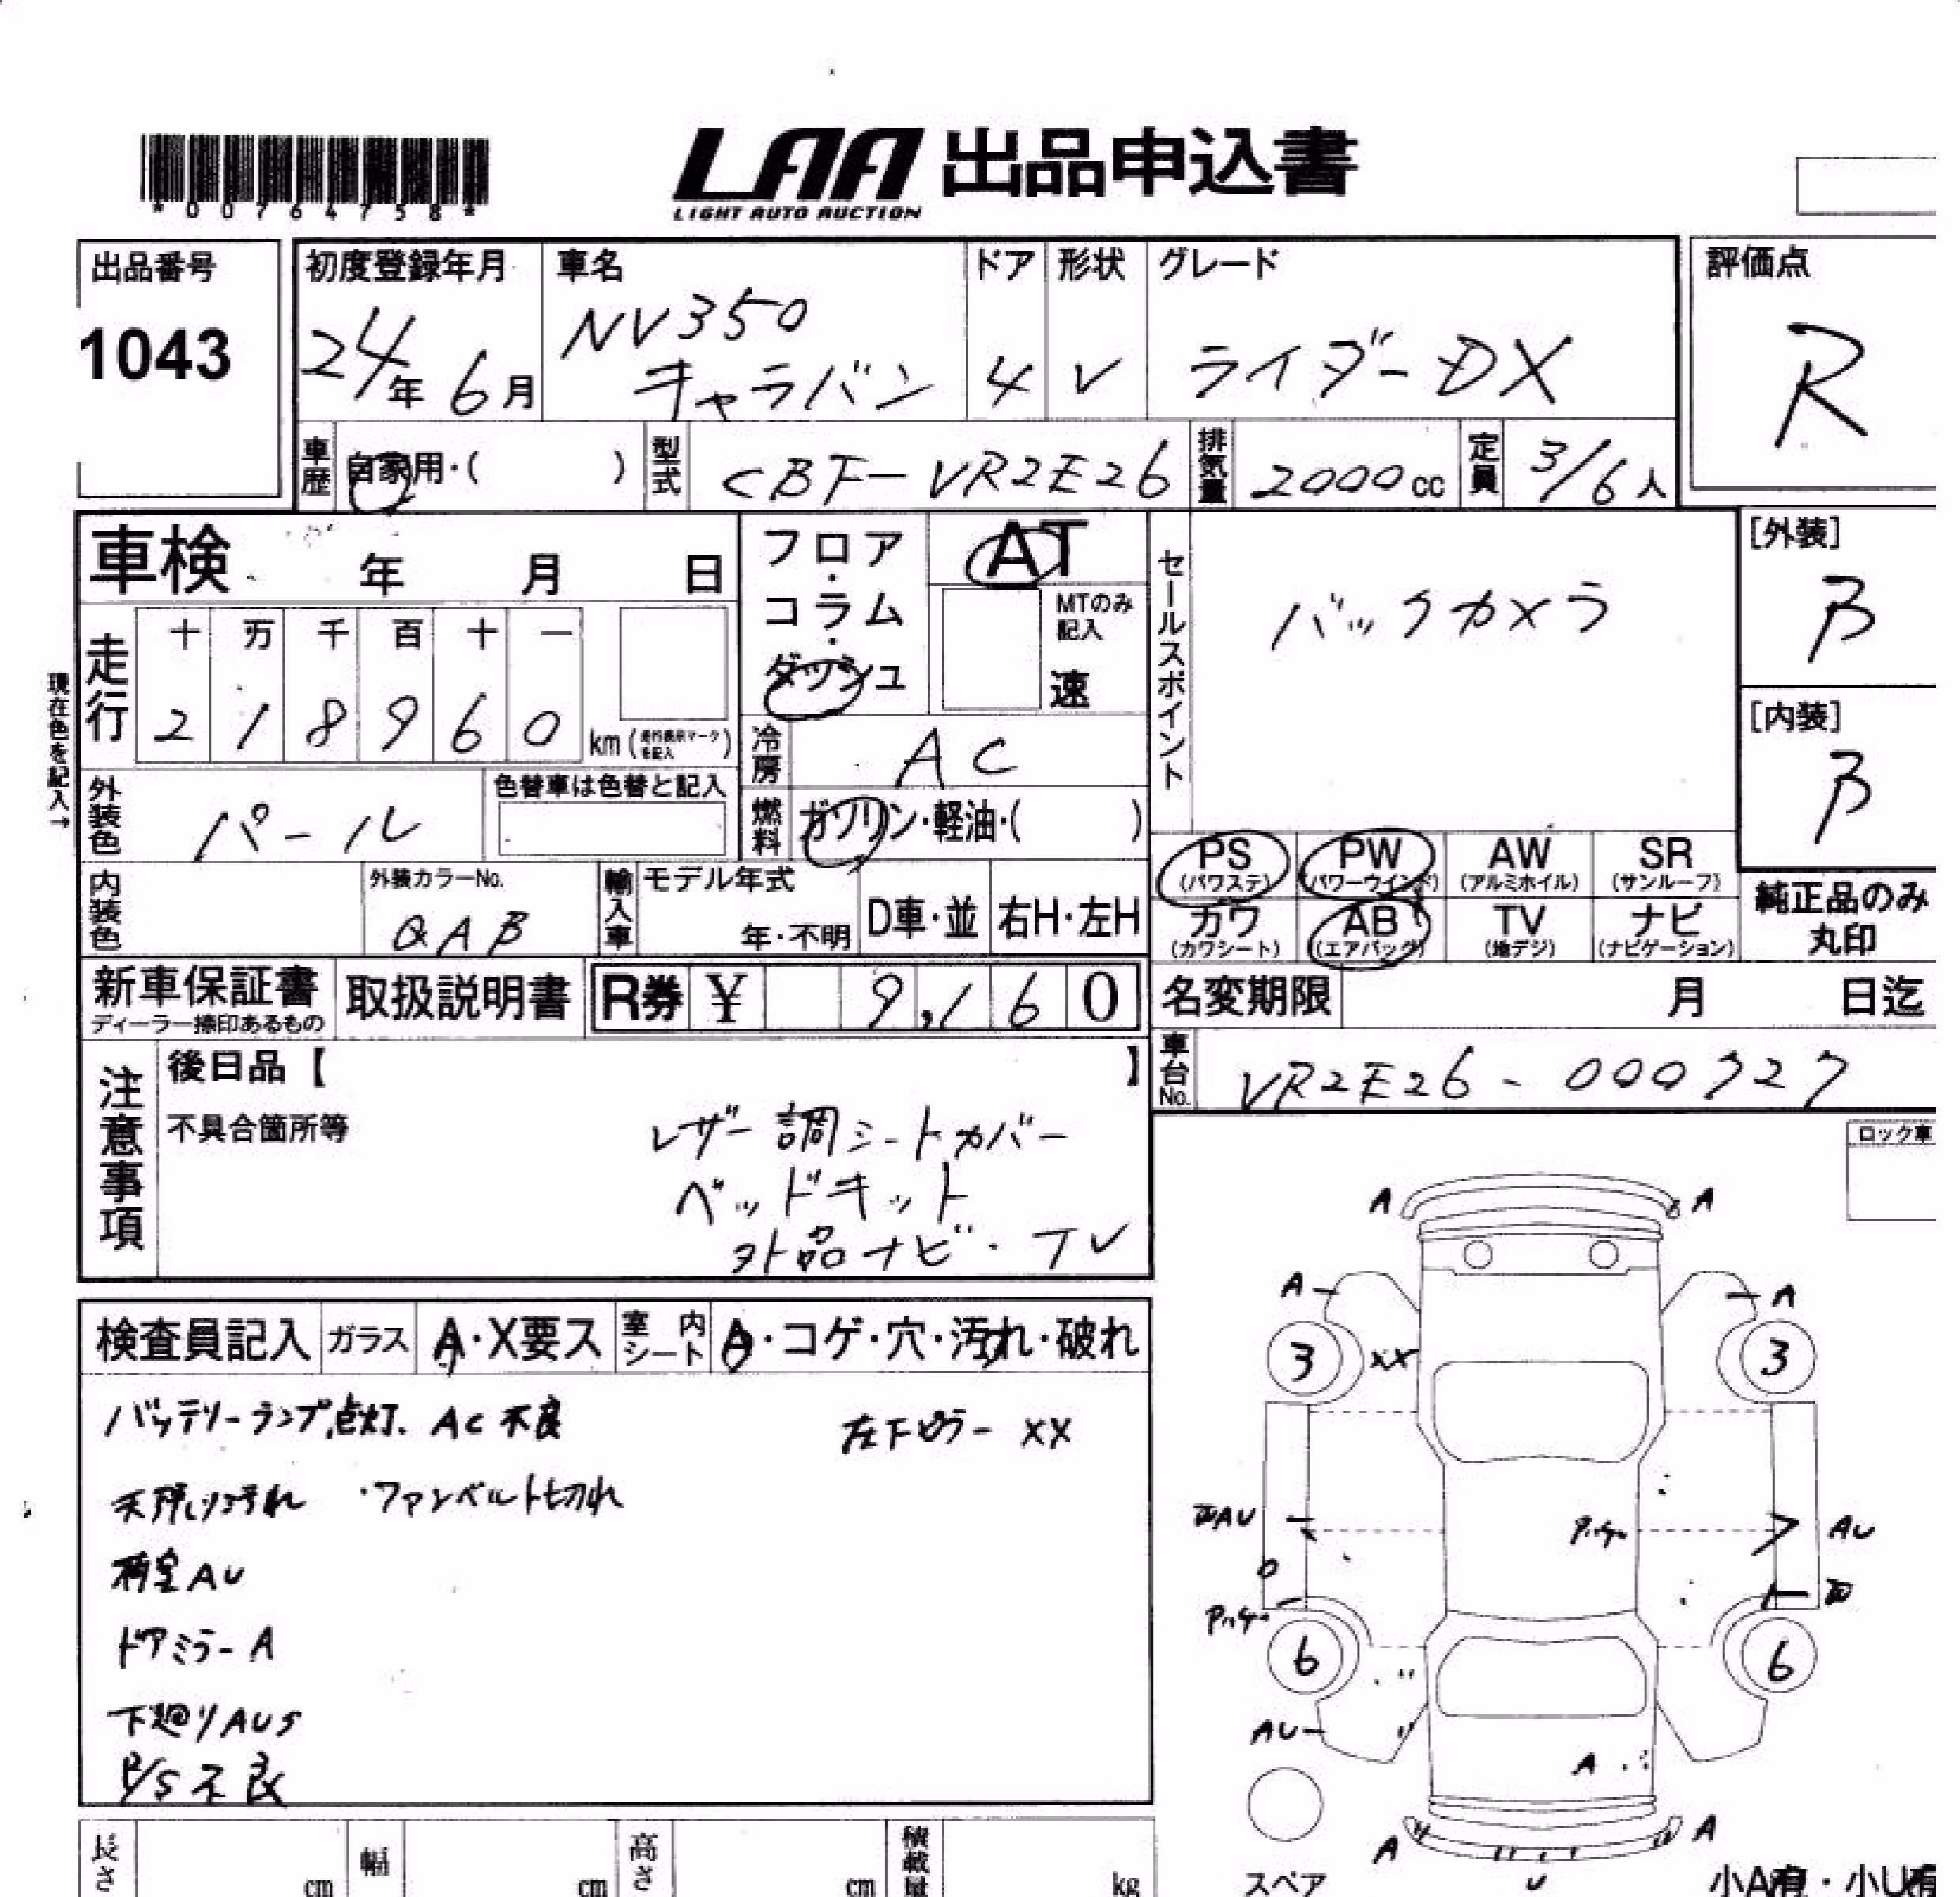 *00764758*
LAA 出品申込書
LIGHT AUTO AUCTION
出品番号
1043
初度登録年月
24年 6月
車名
NV350
キャラバン
ドア
4
形状
V
グレード
ライダーDX
評価点
R
車歴 自家用・( )
型式 CBF-VR2E26
排気量 2000cc
定員 3/6人
車検 年 月 日
フロア・コラム・ダッシュ
AT
MTのみ記入
速
セールスポイント
バックカメラ
[外装]
B
[内装]
B
現在色を記入→
走行
十 万 千 百 十 一
2 1 8 9 6 0 km (走行表示マークを記入)
冷房 AC
外装色 パール
色替車は色替と記入
燃料 ガソリン・軽油・( )
内装色
外装カラーNo.
QAB
輸入車 モデル年式
年・不明
D車・並
右H・左H
PS (パワステ)
PW (パワーウインド)
AW (アルミホイル)
SR (サンルーフ)
カワ (カワシート)
AB (エアバック)
TV (地デジ)
ナビ (ナビゲーション)
純正品のみ
丸印
新車保証書
ディーラー捺印あるもの
取扱説明書
R券 ¥ 9,160
名変期限 月 日迄
車台No. VR2E26-000727
注意事項
後日品【 】
不具合箇所等
レザー調シートカバー
ベッドキット
外品ナビ・TV
ロック車
検査員記入
ガラス A・X要ス
室内シート A・コゲ・穴・汚れ・破れ
バッテリーランプ点灯. AC不良
左下ピラー XX
・ファンベルト切れ
荷室AU
ドアミラーA
下廻りAUS
P/S不良
A A
A A
3 XX 3
AU AU
6 6
AU
A
A A
U
スペア
小A有・小U有
長さ cm
幅 cm
高さ cm
積載量 kg